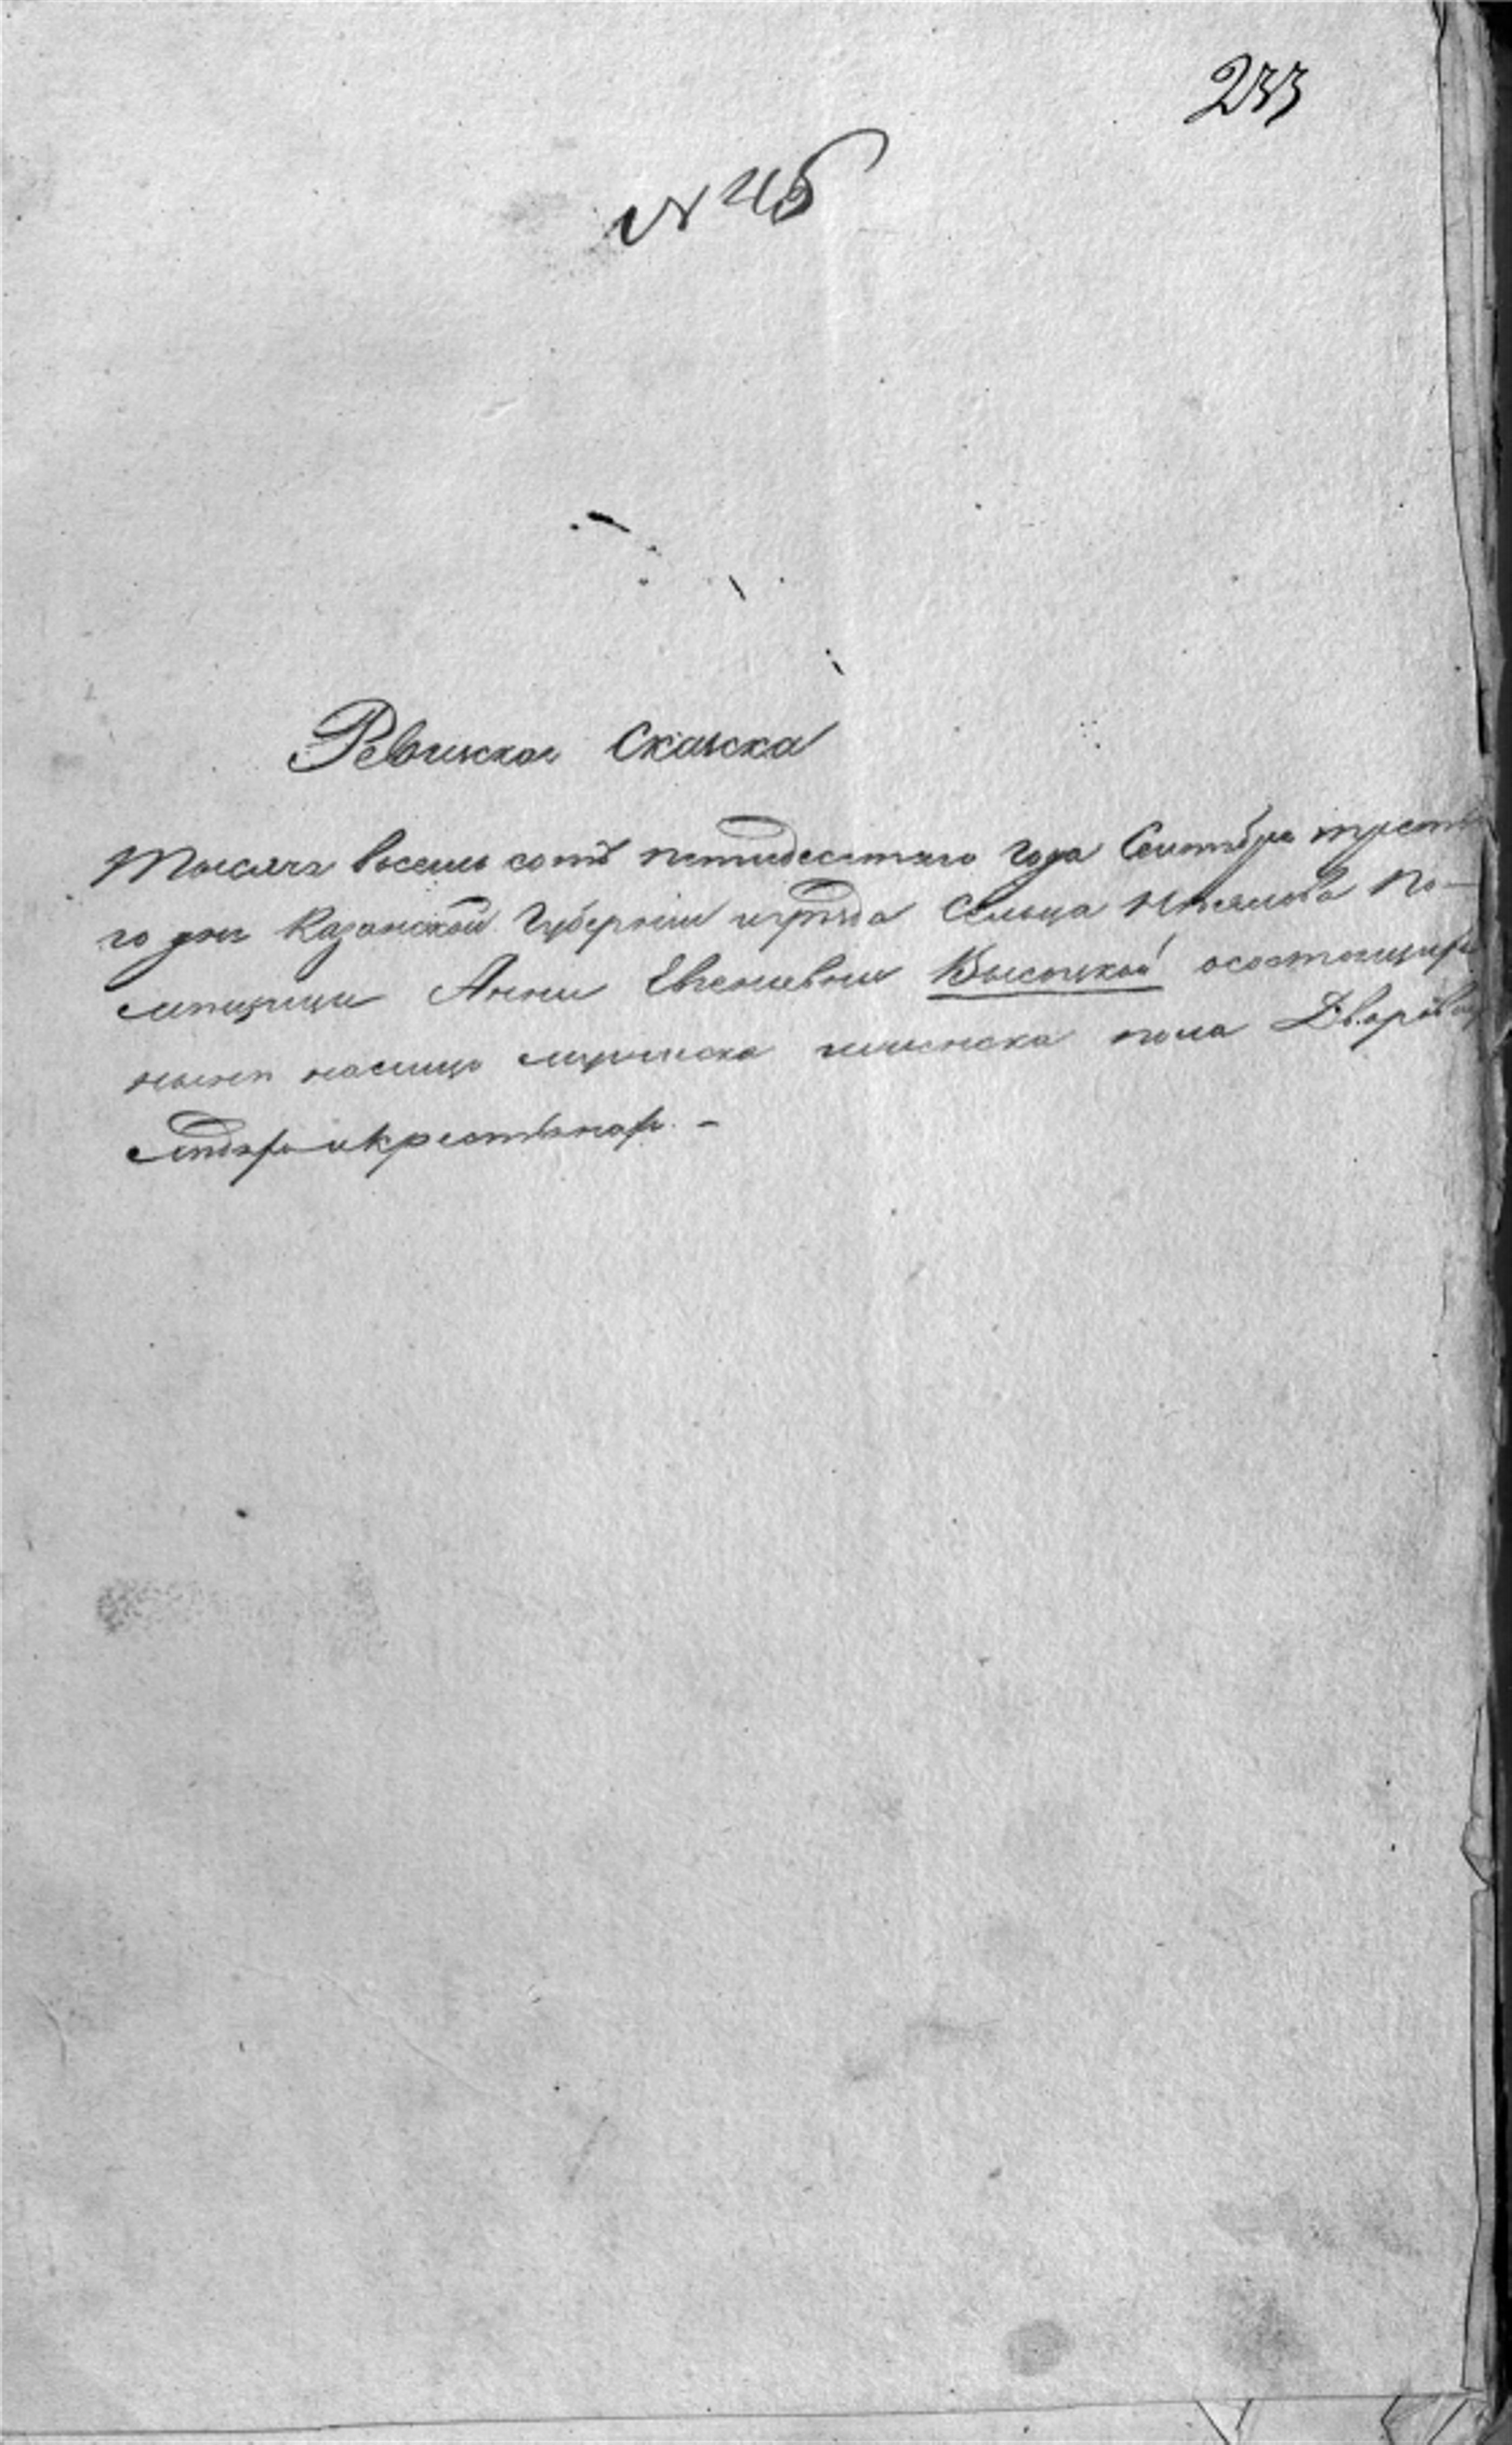 233
№ 46
Ревизская Сказка
Тысяча восемь сотъ пятидесятаго года Сентября третья
го дня Казанской Губернии уѣзда Сельца По-
мѣщицы Анны Евгеньевны Высоцкой о состоящихъ
нынѣ налицо мужеска женска пола Дворовыхъ
людяхъ и крестьянахъ. –